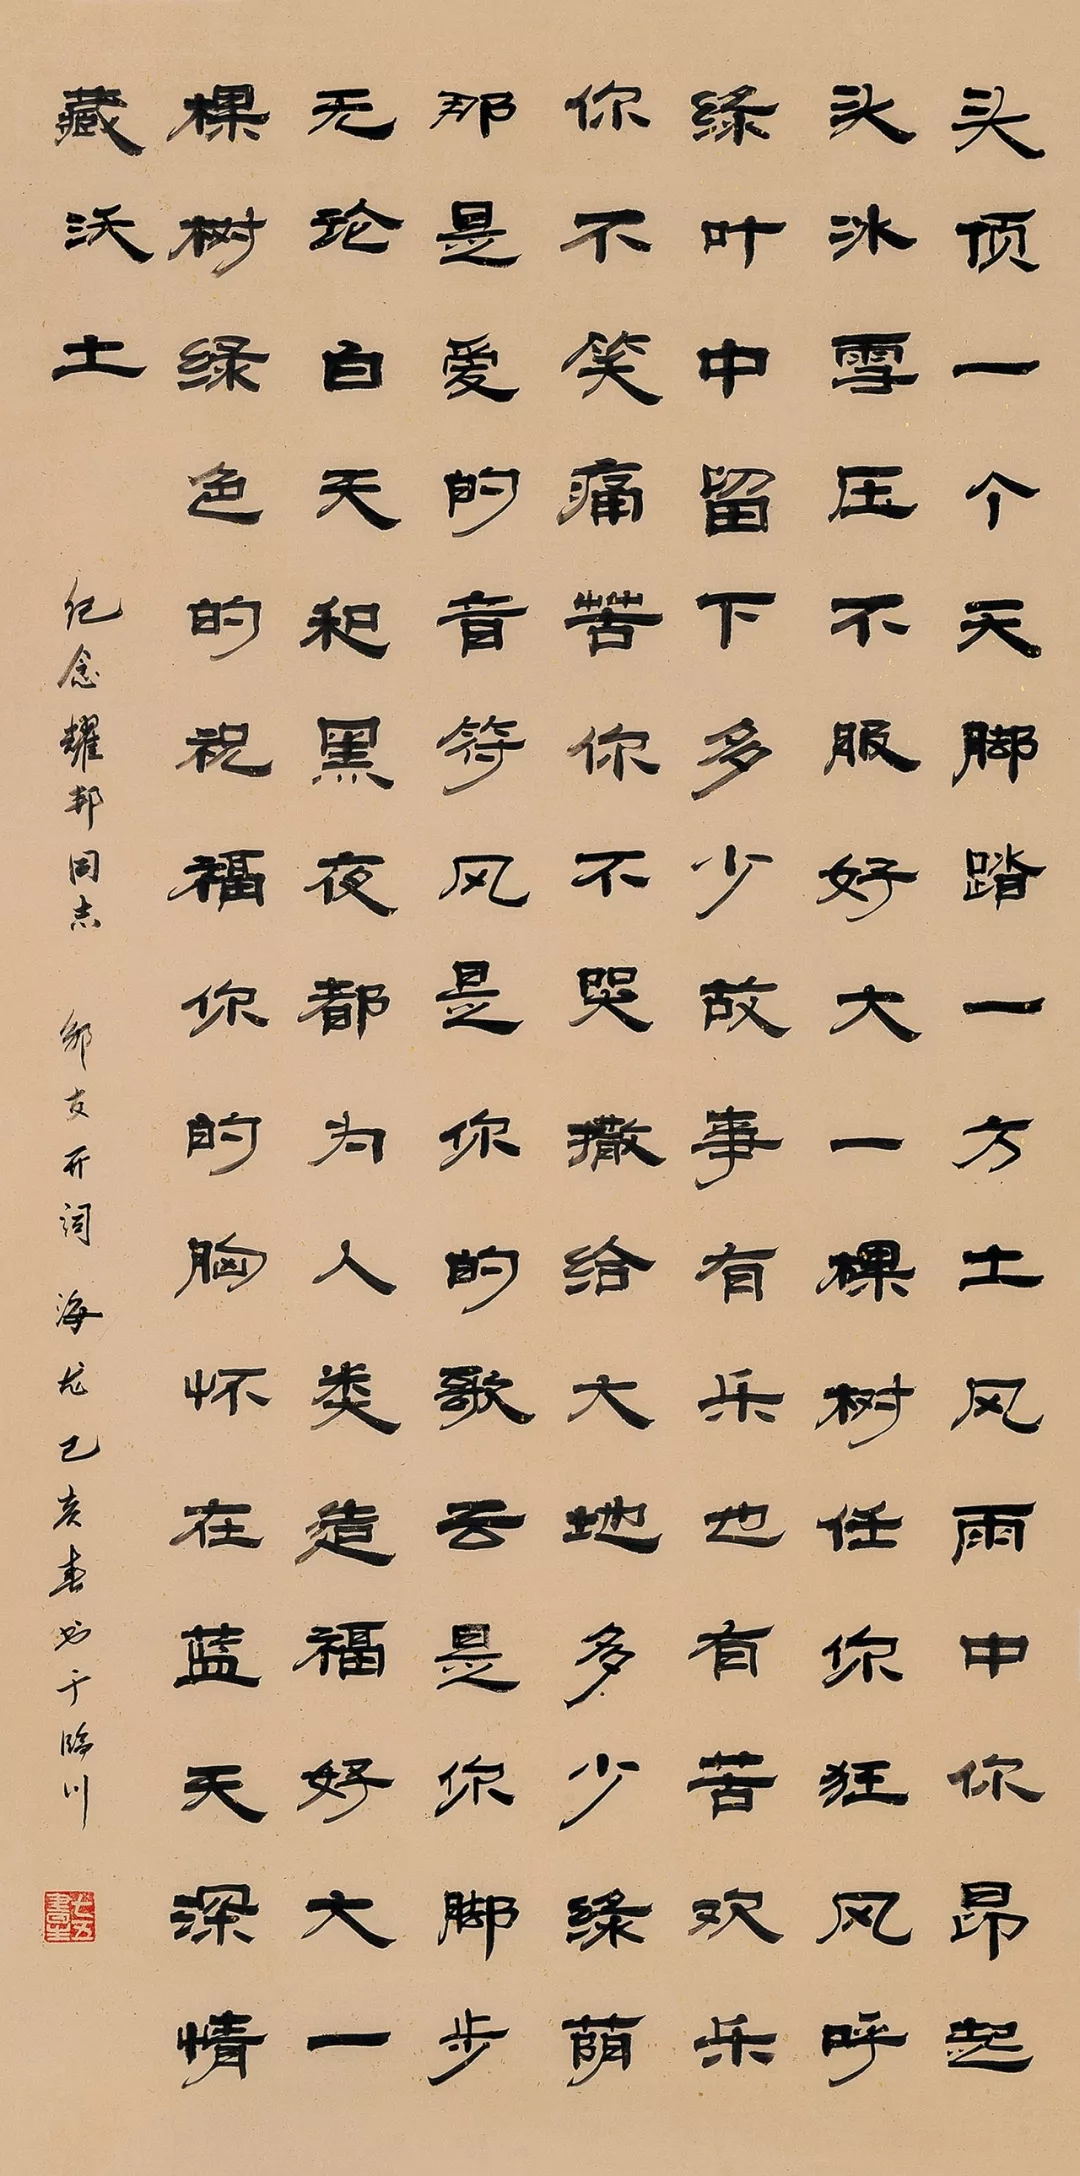 头顶一个天脚踏一方土风雨中你昂起
头冰雪压不服好大一棵树任你狂风呼
绿叶中留下多少故事有乐也有苦欢乐
你不笑痛苦你不哭撒给大地多少绿荫
那是爱的音符风是你的歌云是你脚步
无论白天和黑夜都为人类造福好大一
棵树绿色的祝福你的胸怀在蓝天深情
藏沃土
纪念耀邦同志 邹友开词 海龙己亥春书于临川